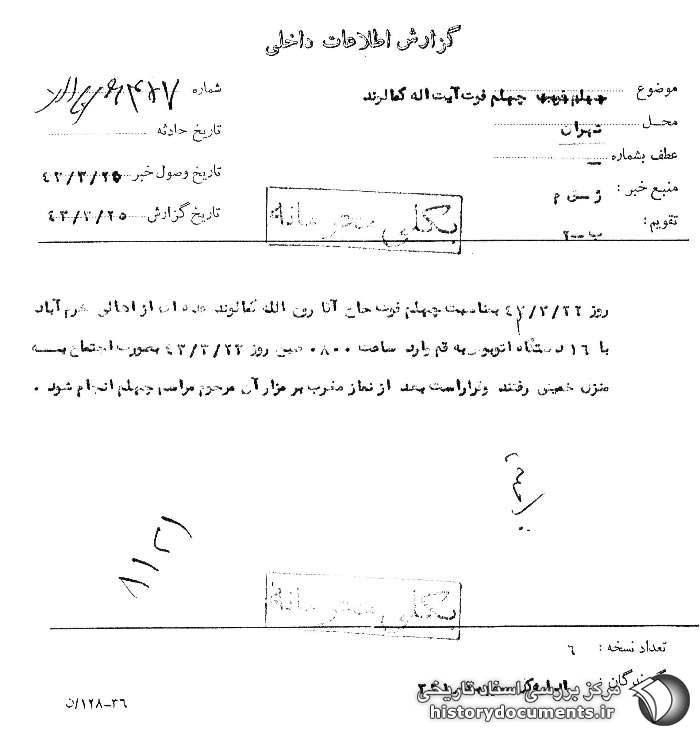 گزارش اطلاعات داخلی
موضوع چهلم فوت آیت اله کمالوند
شماره ۴۸۷
محل تهران
تاریخ حادثه
عطف بشماره —
تاریخ وصول خبر ۴۳/۳/۲۵
منبع خبر :
تاریخ گزارش ۴۳/۳/۲۵
تقویم : ب-۲
بکلی محرمانه
روز ۴۳/۳/۲۲ بمناسبت چهلم فوت حاج آقا روح الله کمالوند عده ای از اهالی خرم آباد
با ۱۶ دستگاه اتوبوس به قم وارد ساعت ۰۸۰۰ صبح روز ۴۳/۳/۲۳ بصورت اجتماع به
منزل خمینی رفتند و قرار است بعد از نماز مغرب بر مزار آن مرحوم مراسم چهلم انجام شود .
بکلی محرمانه
تعداد نسخه : ۶
۳۶-۱۲۸/ن
مرکز بررسی اسناد تاریخی
historydocuments.ir